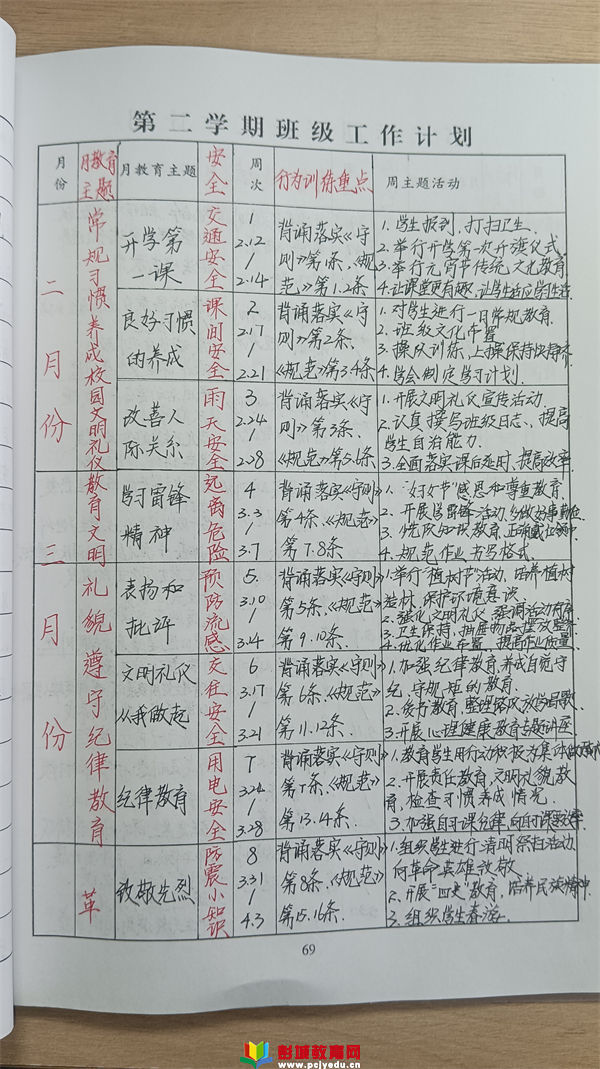 第二学期班级工作计划
月份 月教育主题 月教育主题 安全 周次 行为训练重点 周主题活动
二月份
常规习惯养成校园文明礼仪教育
开学第一课
交通安全
1
2.12
/
2.14
背诵落实《守
则》第1条、《规
范》第1.2条
1. 学生报到,打扫卫生.
2. 举行开学第一次升旗仪式
3. 举行元宵节传统文化教育
4. 让课堂更有趣,让学生适应学生活
良好习惯
的养成
课间安全
2
2.17
/
2.21
背诵落实《守
则》第2条.
《规范》第3.4条
1. 对学生进行一日常规教育.
2. 班级文化布置
3. 操队训练,上操保持快静齐
4. 学会制定学习计划.
改善人
际关系
雨天安全
3
2.24
/
2.28
背诵落实《守
则》第3条.
《规范》第5.6条
1. 开展文明礼仪宣传活动.
2. 认真撰写班级日志、提高
学生自治能力.
3. 全面落实课后延时、提高效率.
三月份
文明礼貌遵守纪律教育
学习雷锋
精神
远离危险
4
3.3
/
3.7
背诵落实《守则》
第4条、《规范》
第7.8条
1. “妇女节”感恩和尊重教育.
2. 开展学雷锋活动,
3. 少先队知识教育,正确戴红领巾
4. 规范作业书写格式.
表扬和
批评
预防流感
5.
3.10
/
3.14
背诵落实《守则》
第5条、《规范》
第9.10条.
1. 举行“植树节”活动,培养植树
造林,保护环境意识.
2. 强化文明礼仪,强调活动有序
3. 卫生保持,抽屉物品摆放整齐
4. 优化作业布置,提高作业质量.
文明礼仪
从我做起
交往安全
6
3.17
/
3.21
背诵落实《守则》
第6条、《规范》
第11.12条.
1. 加强纪律教育,养成自觉守
纪,守规矩的教育.
2. 安全教育,整理路队放学唱歌
3. 开展心理健康教育专题讲座.
纪律教育
用电安全
7
3.24
/
3.28
背诵落实《守则》
第7条、《规范》
第13.14条.
1. 教育学生用行动积极为集体做贡献
2. 开展责任教育,文明礼貌教
育,检查习惯养成情况.
3. 加强自习课纪律,向自习课要效率.
革
致敬先烈
防震小知识
8
3.31
/
4.3
背诵落实《守则》
第8条、《规范》
第15.16条.
1. 组织学生进行清明祭扫活动
向革命英雄致敬.
2. 开展“四史”教育,培养民族精神.
3. 组织学生春游.
69
彭城教育网
www.pcjyedu.cn